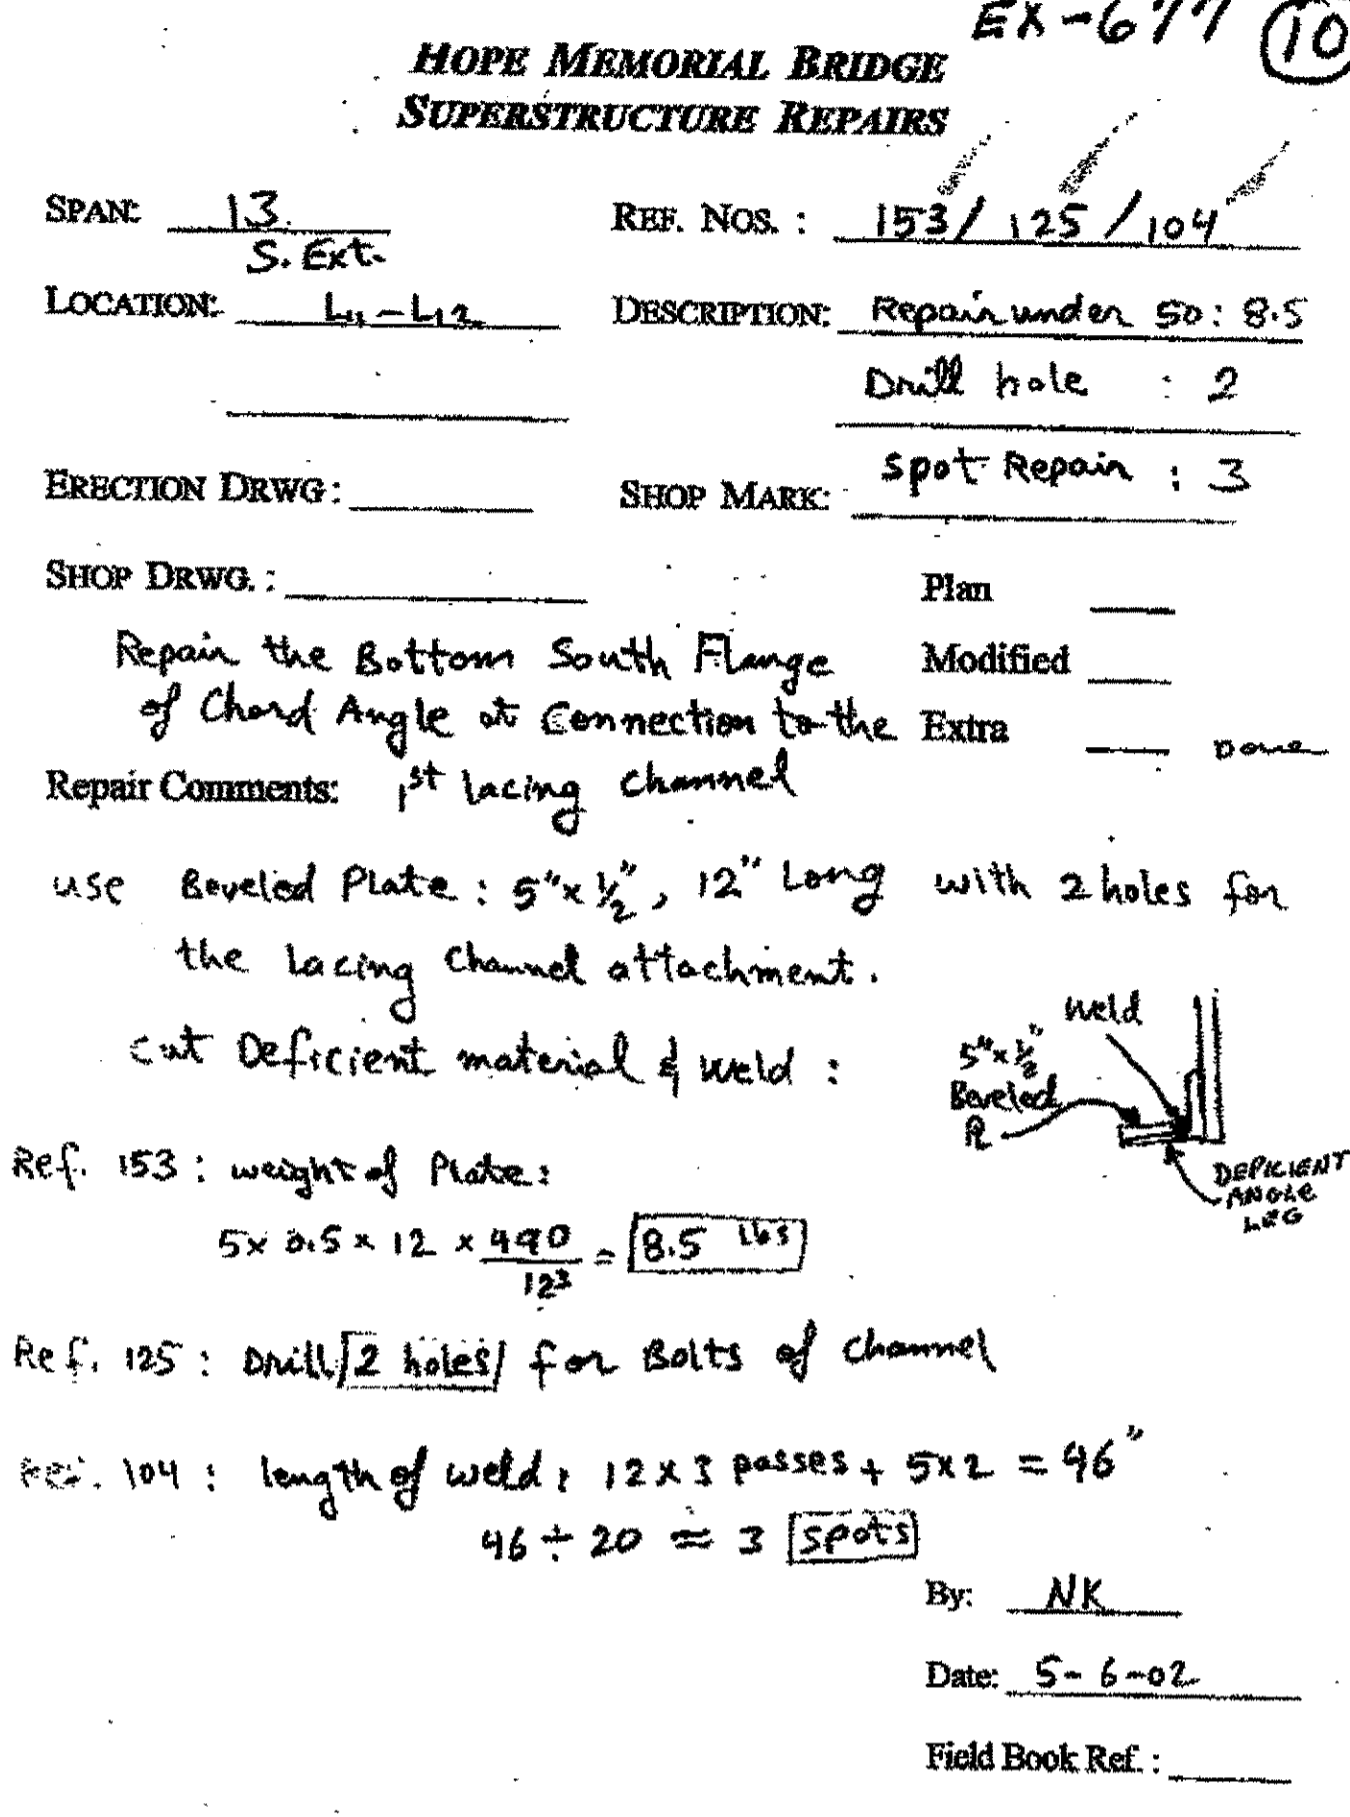 EX-677 (10)
HOPE MEMORIAL BRIDGE
SUPERSTRUCTURE REPAIRS
SPAN: 13 REF. NOS. : 153/ 125 / 104
S. Ext.
LOCATION: L11-L12 DESCRIPTION: Repair under 50: 8.5
Drill hole : 2
Spot Repair : 3
ERECTION DRWG: SHOP MARK:
SHOP DRWG. : Plan
Repair the Bottom South Flange Modified
of Chord Angle at Connection to the Extra Done
Repair Comments: 1st lacing channel
use Beveled Plate: 5"x½", 12" Long with 2 holes for
the lacing channel attachment.
cut Deficient material & weld :
Weld
5"x½"
Beveled
PL
DEFICIENT
ANGLE
LEG
Ref. 153 : weight of Plate:
5x 0.5 x 12 x 490/12³ = 8.5 lbs
Ref. 125 : Drill 2 holes for Bolts of channel
Ref. 104 : length of weld: 12 x 3 passes + 5x2 = 46"
46 ÷ 20 ≈ 3 spots
By: NK
Date: 5-6-02
Field Book Ref. :